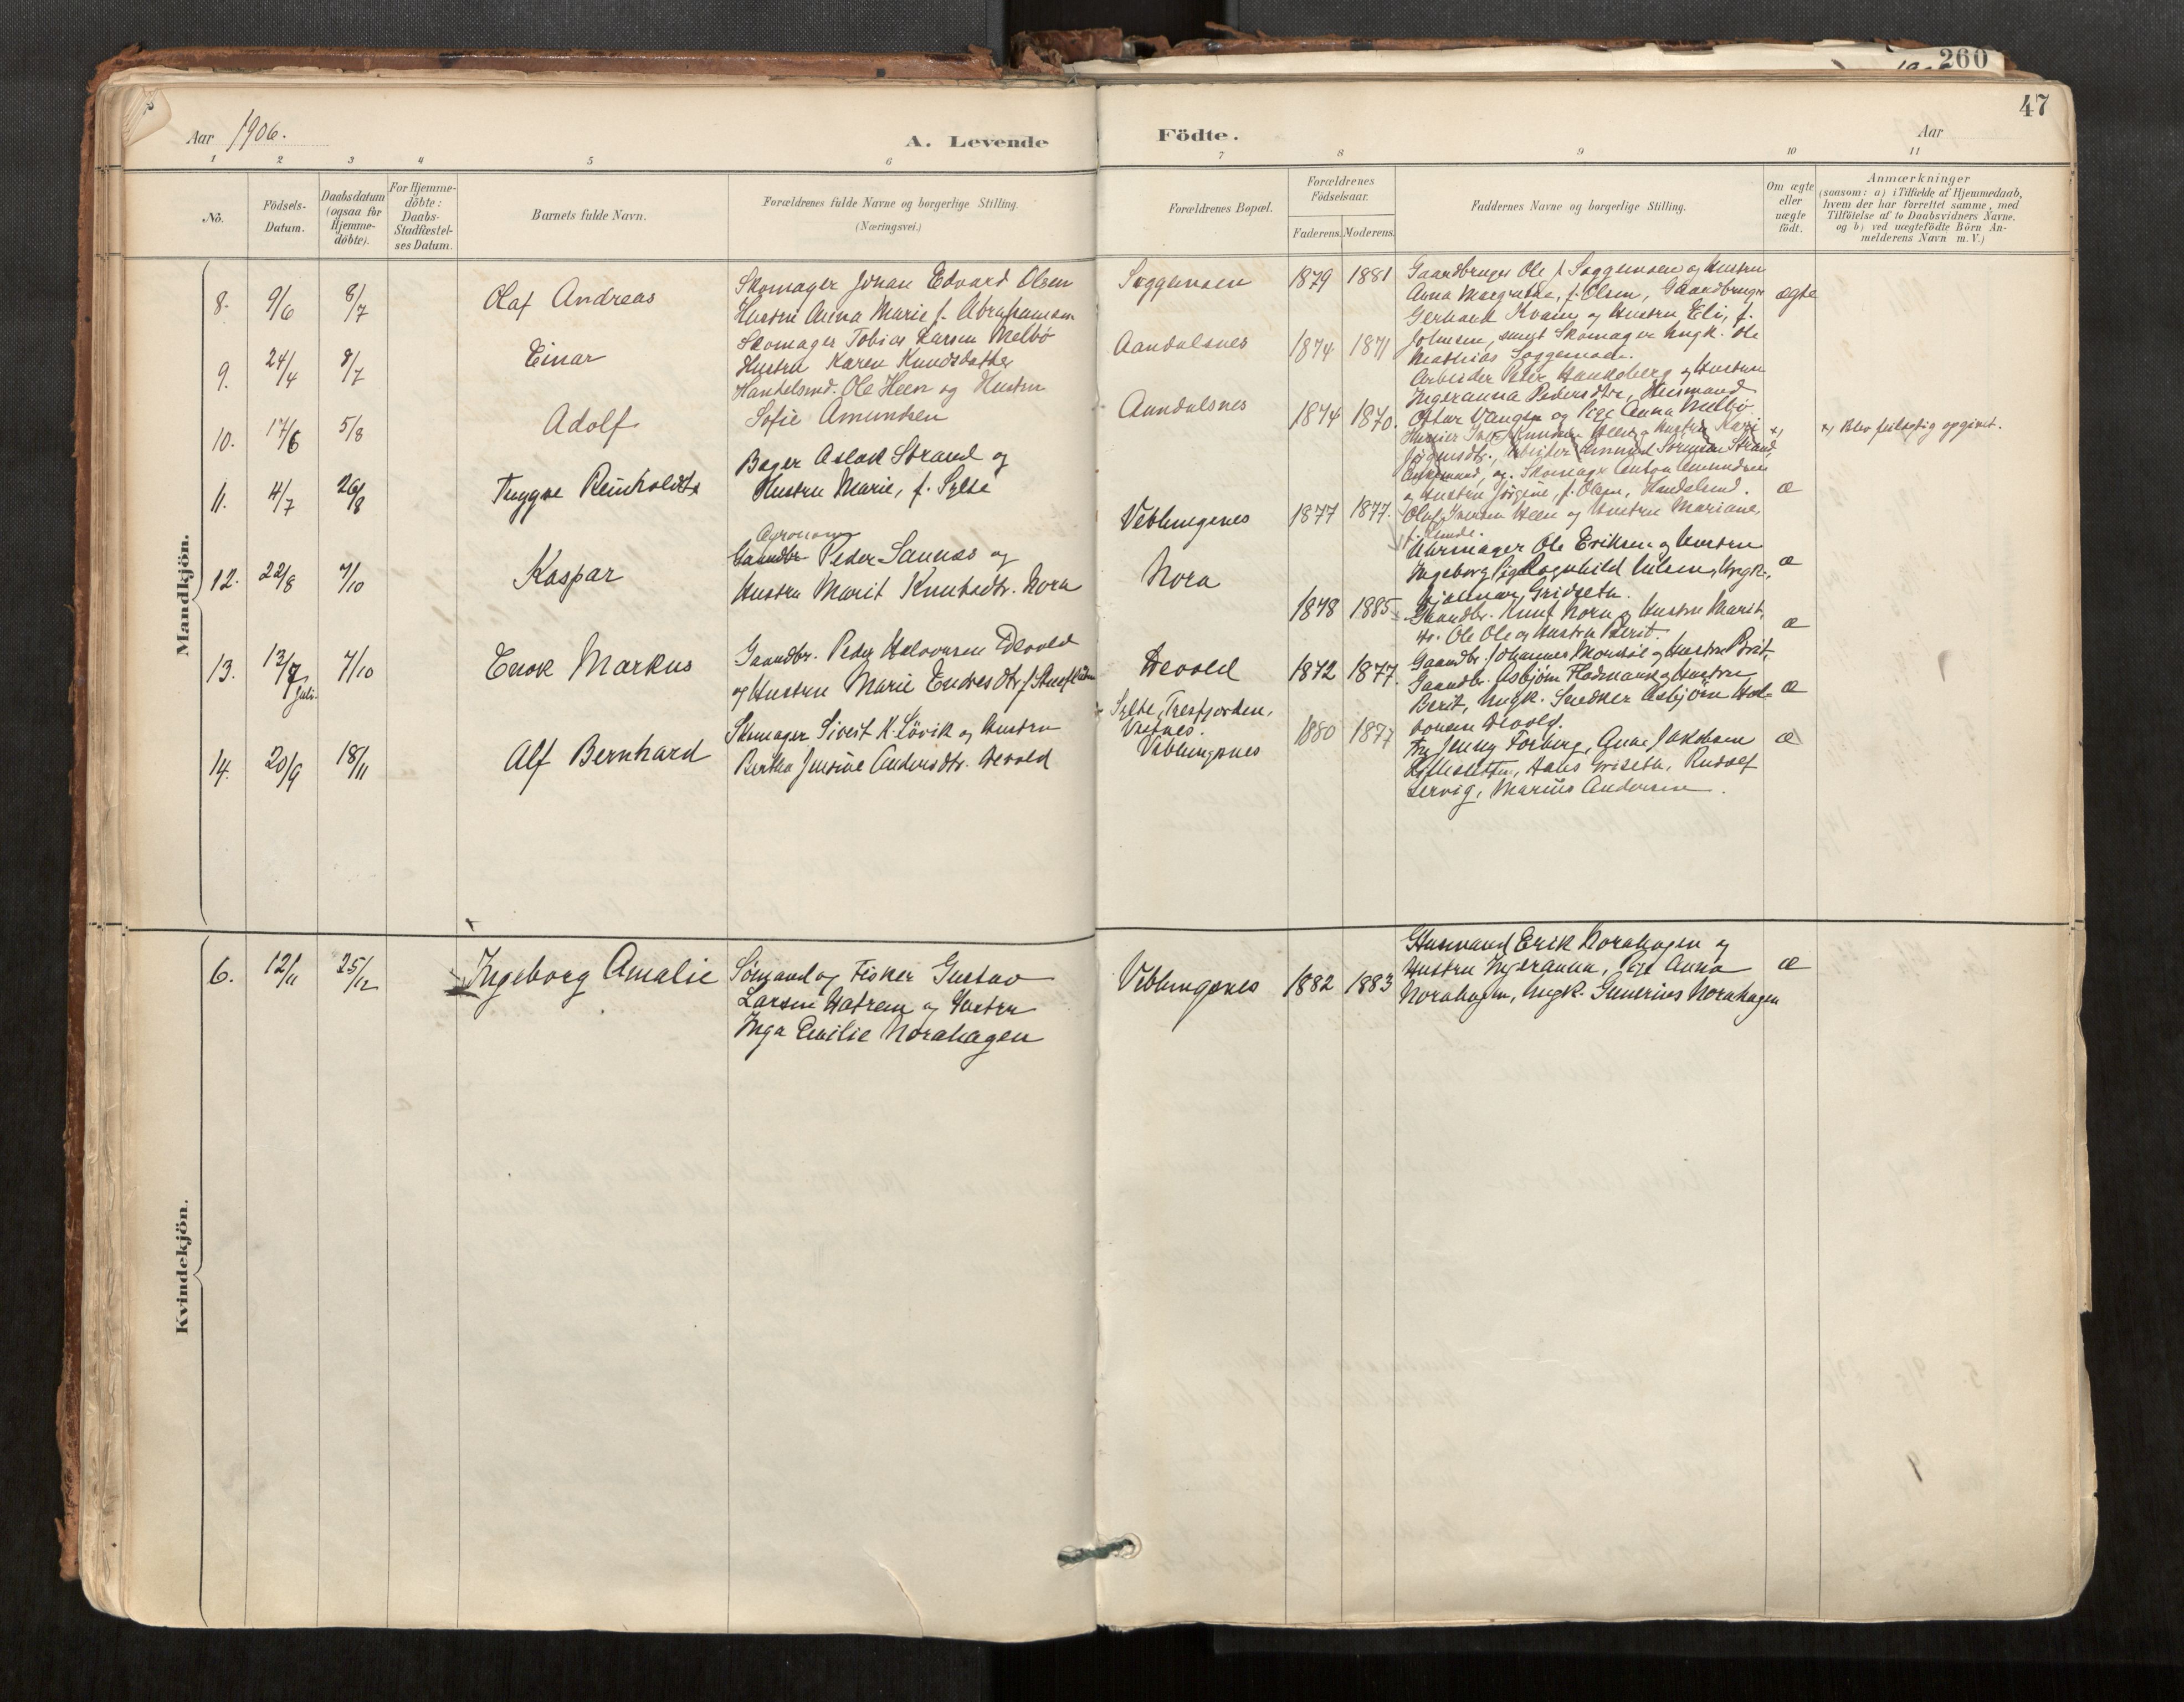 260
47
Aar 1906.
A. Levende
Födte.
Aar
1 2 3 4 5 6 7 8 9 10 11
No.
Födsels-
Datum.
Daabsdatum
(ogsaa for
Hjemme-
döbte).
For Hjemme-
döbte:
Daabs-
Stadfæstel-
ses Datum.
Barnets fulde Navn.
Forældrenes fulde Navne og borgerlige Stilling.
(Næringsvei.)
Forældrenes Bopæl.
Forældrenes
Födselsaar.
Faderens. Moderens.
Faddernes Navne og borgerlige Stilling.
Om ægte
eller
uægte
födt.
Anmærkninger
(saasom: a) i Tilfælde af Hjemmedaab,
hvem der har forrettet samme, med
Tilföielse af to Daabsvidners Navne.
og b) ved uægtefödte Börn An-
melderens Navn m. V.)
Mandkjön.
8. 9/6 8/7 Olaf Andreas
Skomager Johan Edvard Olsen
Hustru Anna Marie f. Abrahamsen
Soggemoen 1879 1881
Gaardbruger Ole Soggemoen og Hustru
Anna Margrethe, f. Olsen, Gaardbruger
Gerhard Kvam og Hustru Eli, f.
Johnsen, samt Skomager Ungk. Ole
Mathias Soggemoen.
ægte
9. 24/4 8/7 Einar
Skomager Tobias Larsen Melbö
Hustru Karen Knudsdatter
Aandalsnes 1874 1871
Arbeider Peter Handeberg og Hustru
Ingeranna Pedersdtr., Husmand
Ostur Vangen og Pige Anna Melbö
10. 17/6 5/8 Adolf
Handelsmd. Ole Heen og Hustru
Sofie Amundsen
Aandalsnes 1874 1870.
Iver Knudsen Heen og Hustru Kari
Jörgensdtr., Arbeider Amund Sörensen Strand,
Enkemand, og Skomager Anton Amundsen
og Hustru Jörgine, f. Olsen, Handelsmd.
Olaf Iversen Heen og Hustru Mariane,
f. Unde.
x) æ
x) Blev feilagtig opgivet.
11. 4/7 26/8 Trygve Reinholdt
Bager Aslak Strand og
Hustru Marie, f. Sylte
Veblungsnes 1877 1877.
Uhrmager Ole Eriksen og Hustru
Ingeborg Pige Ragnhild Nilsen, Ungk.
Hjalmar Gridseth.
æ
12. 22/8 7/10 Kaspar
Agronom
Gaardbr. Peder Sannes og
Hustru Marit Knutsdtr. Nora
Nora
1878 1885
Gaardbr. Knut Nora og Hustru Marit,
do. Ole Ole og Hustru Berit.
æ
13. 13/7 Juli. 7/10 Enok Markus
Gaardbr. Peder Halvorsen Devold
og Hustru Marie Endresdtr.
Devold 1872 1877.
Gaardbr. Johannes og Hustru Brit,
Gaardbr. Asbjörn Fladmark og Hustru
Berit, Ungk. Snedker Asbjörn Hal-
vorsen Devold.
æ
14. 20/9 18/11 Alf Bernhard
Skomager Sivert K. Lövik og Hustru
Bertha Jensine Andersdtr. Devold
Sylte, Tresfjorden,
Vestnes.
Veblungsnes
1880 1877
Fru Jenny Forberg, Anne Jakobsen
Hans Griseth, Rudolf
Lervig, Marius Andersen.
æ
Kvindekjön.
6. 12/11 25/12 Ingeborg Amalie
Sömand og Fisker Gustav
Larsen Hatrem og Hustru
Inga Emilie Norahagen
Veblungsnes 1882 1883
Husmand Erik Norahagen og
Hustru Ingeranna, Pige Anna
Norahagen, Ungk. Gunerius Norahagen
æ